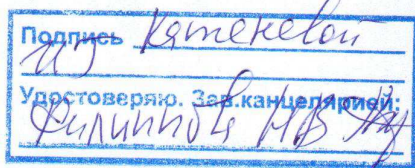 Подпись Каменевой
ИЭ
Удостоверяю. Зав.канцелярией:
Филиппова НВ